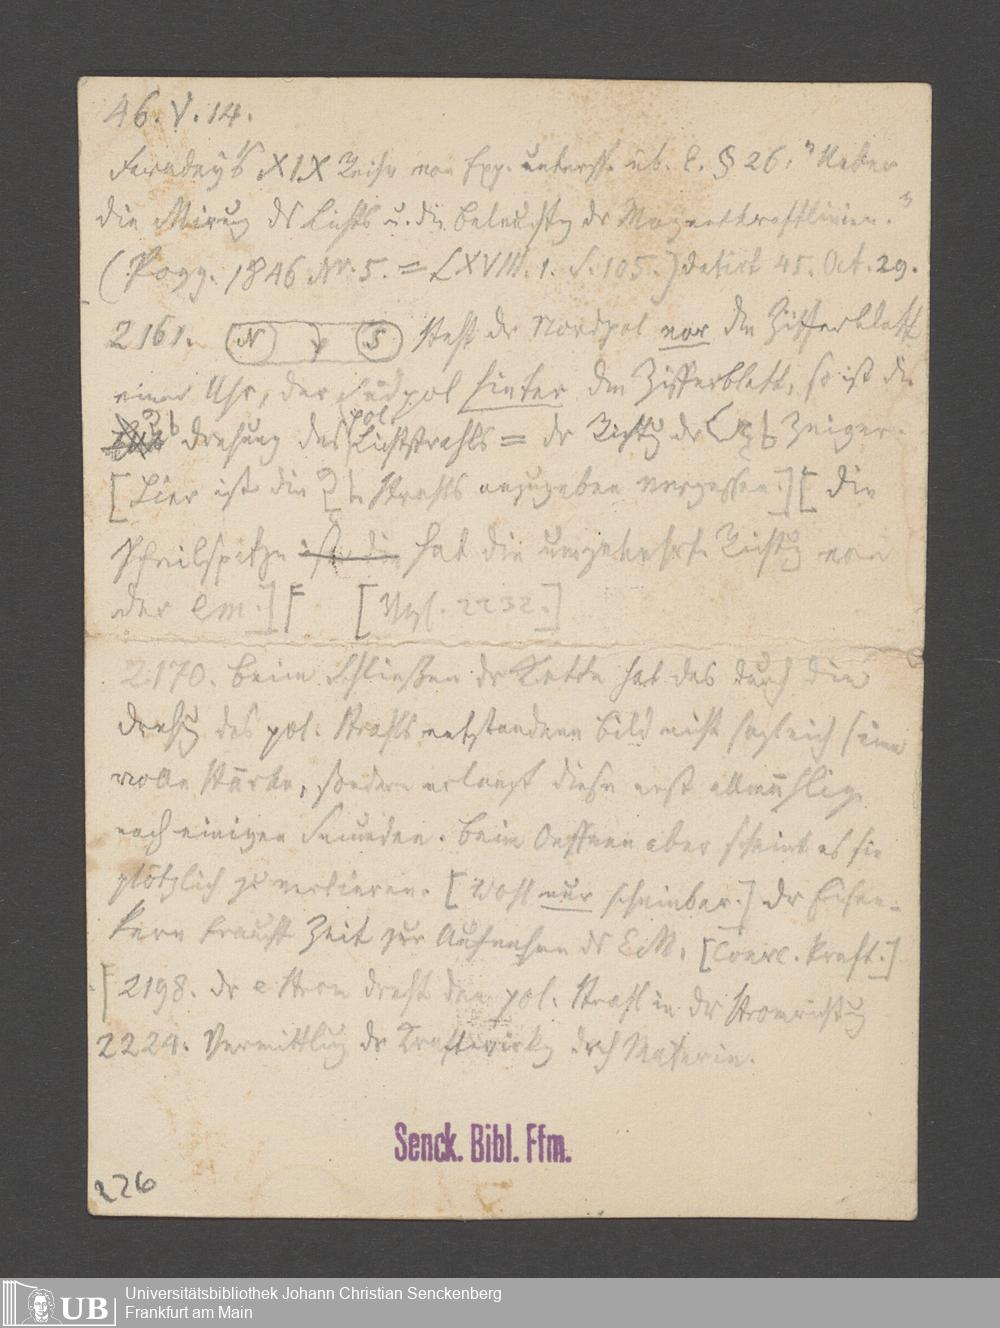 46. V. 14.
Faraday's XIX Reihe von Exp. untersch. üb. E. § 26. "Ueber
die Mirug ds Lichts u. die Beleuchtg dr Magnetkraftlinien."
(Pogg. 1846 Nr. 5. = LXVIII. 1. S. 105.) datirt 45. Oct. 29.
2161. N S Steht dr Nordpol vor dem Zifferblatt
einer Uhr, der Südpol hinter dem Zifferblatt, so ist die
Drehung des pol Lichtstrahls = dr Richtg dr Zeiger.
[Hier ist die Strahls anzugeben vergessen.] [die
Pfeilspitze ist die hat die umgekehrte Richtg von
der em.] F [Vgl. 2232.]
2170. Beim Schließen dr Kette hat das durch die
Drehg des pol. Strahls entstandene Bild nicht sogleich seine
volle Stärke, sondern erlangt diese erst allmählig
nach einigen Secunden. Beim Oeffnen aber scheint es sie
plötzlich zu verlieren. [Wohl nur scheinbar.] Dr Eisen-
kern braucht Zeit zur Aufnahme ds E.M. [Coerc. Kraft.]
F 2198. Dr e Strom dreht den pol. Strahl in dr Stromrichtg
2224. Vermittlug dr Kraftwirkg drch Materie.
Senck. Bibl. Ffm.
226
UB
Universitätsbibliothek Johann Christian Senckenberg
Frankfurt am Main